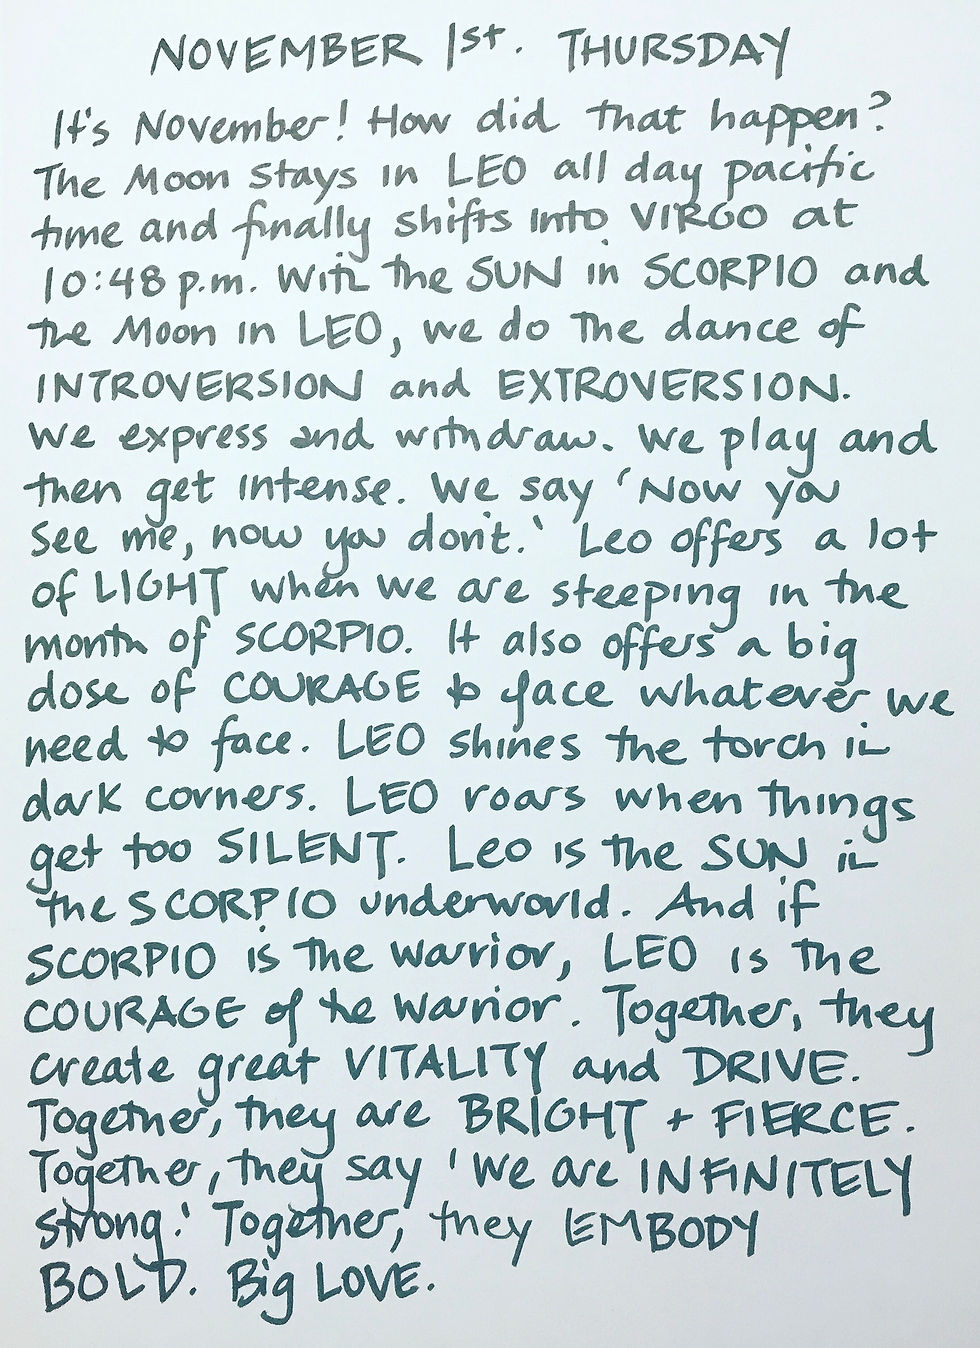 NOVEMBER 1st. THURSDAY
It's November! How did that happen?
The Moon stays in LEO all day pacific
time and finally shifts into VIRGO at
10:48 p.m. With the SUN in SCORPIO and
the Moon in LEO, we do the dance of
INTROVERSION and EXTROVERSION.
We express and withdraw. We play and
then get intense. We say 'Now you
see me, now you don't.' Leo offers a lot
of LIGHT when we are steeping in the
month of SCORPIO. It also offers a big
dose of COURAGE to face whatever we
need to face. LEO shines the torch in
dark corners. LEO roars when things
get too SILENT. Leo is the SUN in
the SCORPIO underworld. And if
SCORPIO is the warrior, LEO is the
COURAGE of the warrior. Together, they
create great VITALITY and DRIVE.
Together, they are BRIGHT + FIERCE.
Together, they say 'We are INFINITELY
strong.' Together, they EMBODY
BOLD. Big LOVE.